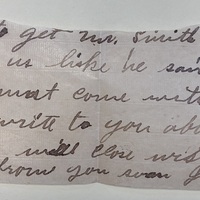 to get Mr. Smith
us like he said
must come with
write to you abo
will close wis
from you soon